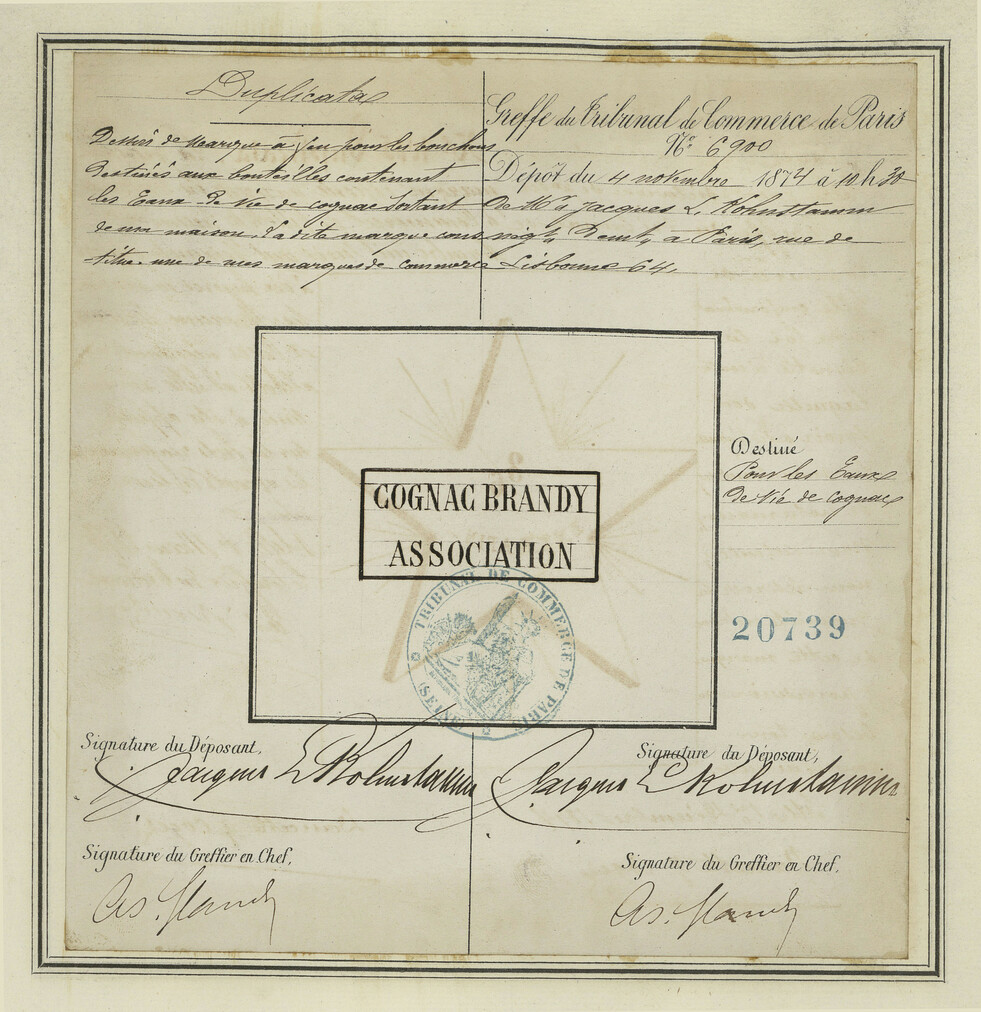 Duplicata
Dessin de Marque à feu pour les bouchons
destinés aux bouteilles contenant
les Eaux-de-Vie de cognac sortant
de ma maison. La dite marque cons
titue une de mes marques de commerce
Greffe du Tribunal de Commerce de Paris
N° 6900
Dépôt du 4 novembre 1874 à 10 h 30
de Mr Jacques L. Kohnstamm
négt, demt, à Paris, rue de
Lisbonne 64.
COGNAC BRANDY
ASSOCIATION
TRIBUNAL DE COMMERCE DE PARIS
(SEINE)
Destiné
Pour les Eaux
de Vie de cognac
20739
Signature du Déposant,
Jacques L Kohnstamm
Signature du Déposant,
Jacques L Kohnstamm
Signature du Greffier en Chef,
Signature du Greffier en Chef,